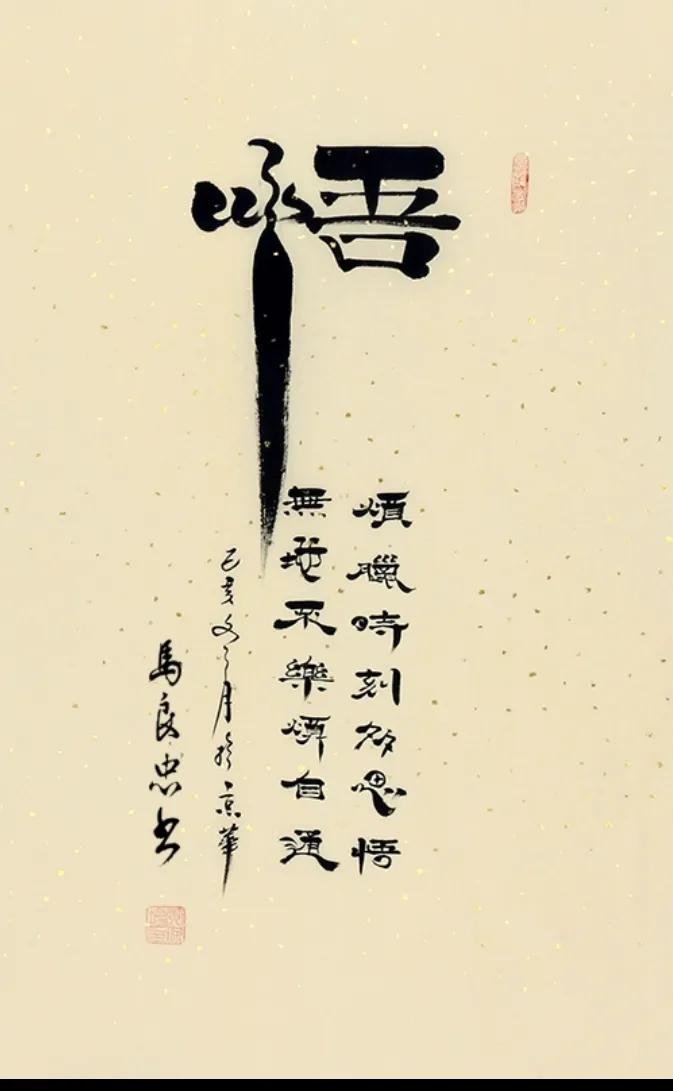 悟
煩臘時刻多思悟
無地不樂煩自通
己亥冬月於京華
馬良忠书